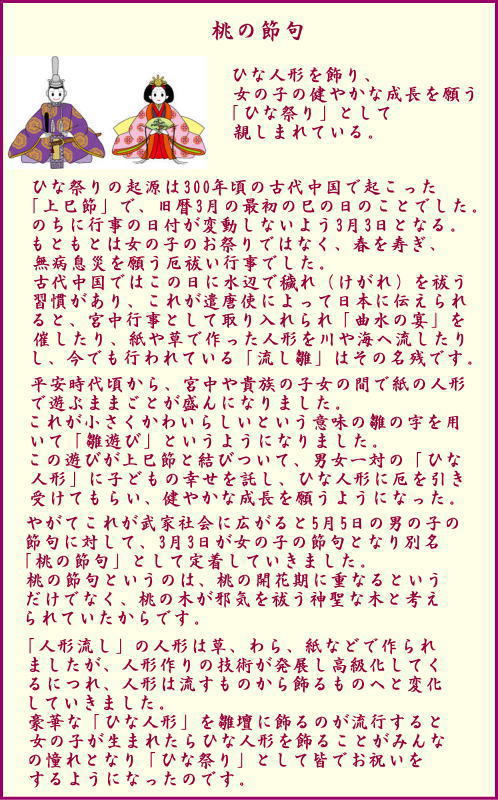 桃の節句
ひな人形を飾り、
女の子の健やかな成長を願う
「ひな祭り」として
親しまれている。
ひな祭りの起源は300年頃の古代中国で起こった
「上巳節」で、旧暦3月の最初の巳の日のことでした。
のちに行事の日付が変動しないよう3月3日となる。
もともとは女の子のお祭りではなく、春を寿ぎ、
無病息災を願う厄祓い行事でした。
古代中国ではこの日に水辺で穢れ（けがれ）を祓う
習慣があり、これが遣唐使によって日本に伝えられ
ると、宮中行事として取り入れられ「曲水の宴」を
催したり、紙や草で作った人形を川や海へ流したり
し、今でも行われている「流し雛」はその名残です。
平安時代頃から、宮中や貴族の子女の間で紙の人形
で遊ぶままごとが盛んになりました。
これが小さくかわいらしいという意味の雛の字を用
いて「雛遊び」というようになりました。
この遊びが上巳節と結びついて、男女一対の「ひな
人形」に子どもの幸せを託し、ひな人形に厄を引き
受けてもらい、健やかな成長を願うようになった。
やがてこれが武家社会に広がると5月5日の男の子の
節句に対して、3月3日が女の子の節句となり別名
「桃の節句」として定着していきました。
桃の節句というのは、桃の開花期に重なるという
だけでなく、桃の木が邪気を祓う神聖な木と考え
られていたからです。
「人形流し」の人形は草、わら、紙などで作られ
ましたが、人形作りの技術が発展し高級化してく
るにつれ、人形は流すものから飾るものへと変化
していきました。
豪華な「ひな人形」を雛壇に飾るのが流行すると
女の子が生まれたらひな人形を飾ることがみんな
の憧れとなり「ひな祭り」として皆でお祝いを
するようになったのです。